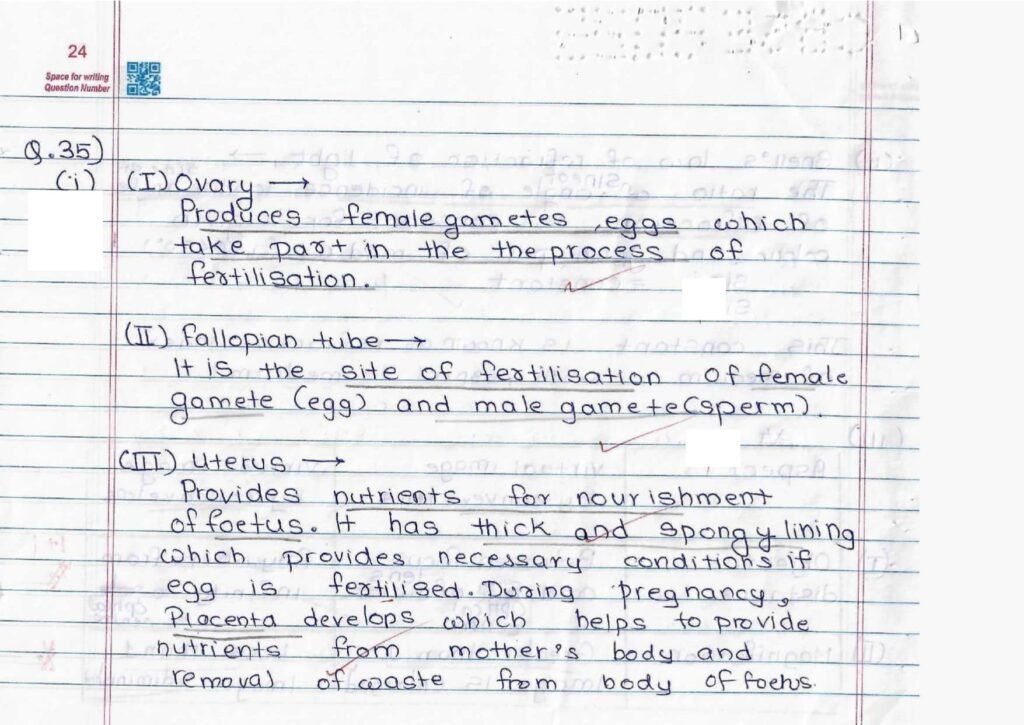 24
Space for writing
Question Number
Q.35)
(i) (I) Ovary →
Produces female gametes, eggs which
take part in the the process of
fertilisation.
(II) Fallopian tube →
It is the site of fertilisation of female
gamete (egg) and male gamete (sperm).
(III) Uterus →
Provides nutrients for nourishment
of foetus. It has thick and spongy lining
which provides necessary conditions if
egg is fertilised. During pregnancy,
Placenta develops which helps to provide
nutrients from mother's body and
removal of waste from body of foetus.